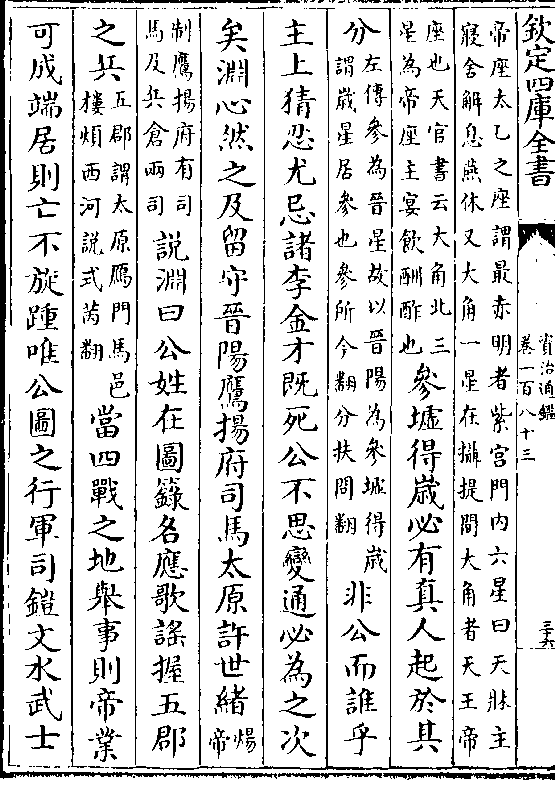 欽定四庫全書
資治通鑑
卷一百八十三
三六
帝座太乙之座謂最赤明者紫宫門内六星曰天牀主
寢舍解息燕休又大角一星在攝提間大角者天王帝
座也天官書云大角北三
星為帝座主宴飲酬酢也
參墟得歳必有真人起於其
分
左傳參為晉星故以晉陽為參墟得歳
謂歳星居參也參所今翻分扶問翻
非公而誰乎
主上猜忍尤忌諸李金才既死公不思變通必為之次
矣淵心然之及留守晉陽鷹揚府司馬太原許世緒
煬
帝
制鷹揚府有司
馬及兵倉兩司
説淵曰公姓在圖籙名應歌謡握五郡
之兵
五郡謂太原鴈門馬邑
樓煩西河説式芮翻
當四戰之地舉事則帝業
可成端居則亡不旋踵唯公圖之行軍司鎧文水武士